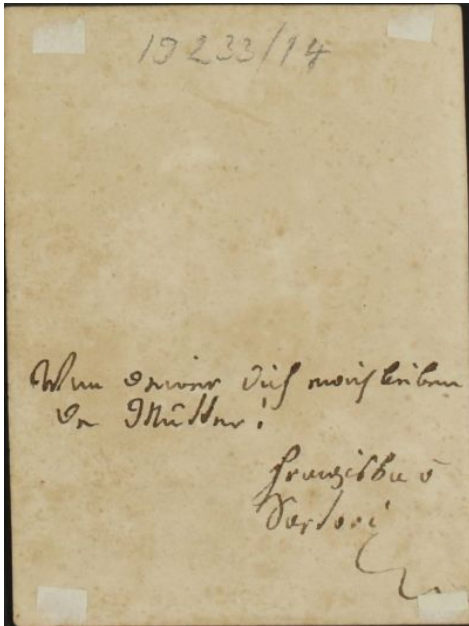 19233/14
Von deiner Dich ewig lieben
de Mutter!
Franziska v
Sartori